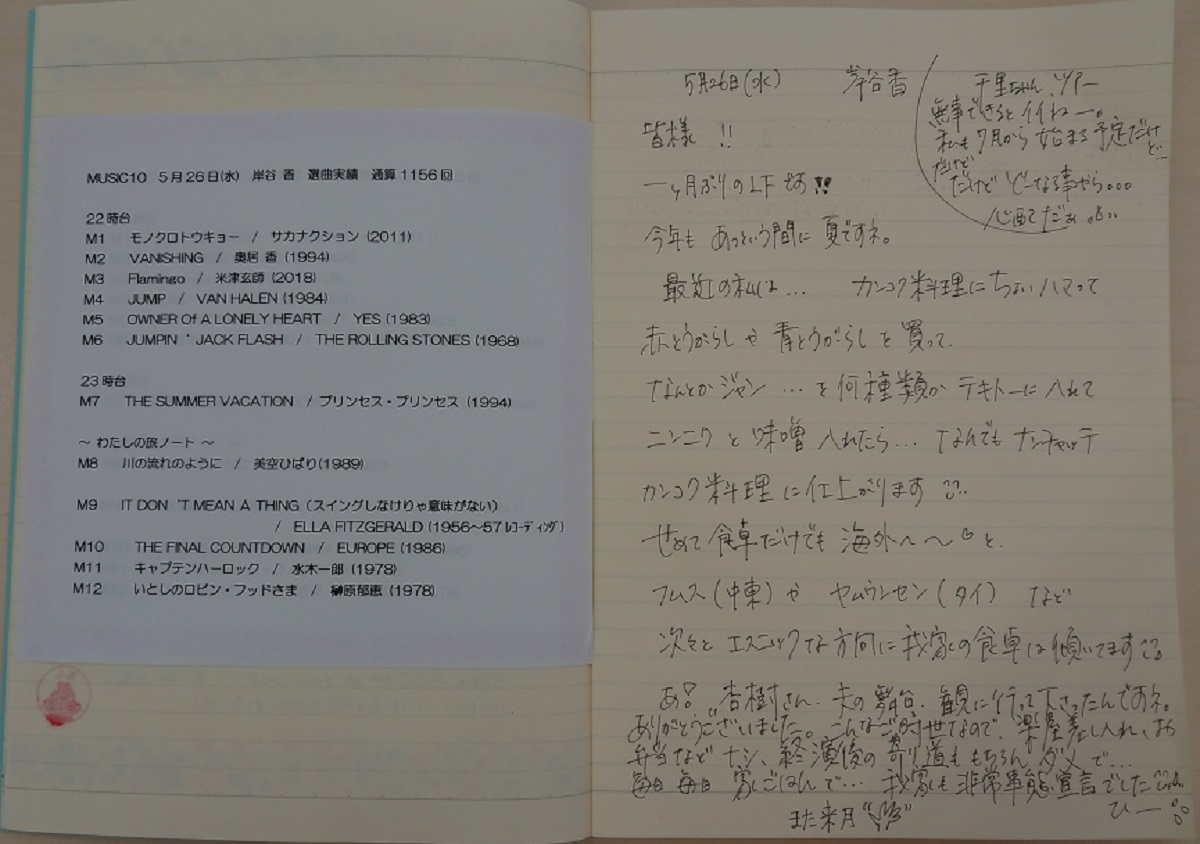 MUSIC10 5月26日(水) 岸谷 香 選曲実績 通算1156回
22時台
M1 モノクロトウキョー / サカナクション (2011)
M2 VANISHING / 奥居 香 (1994)
M3 Flamingo / 米津玄師 (2018)
M4 JUMP / VAN HALEN (1984)
M5 OWNER Of A LONELY HEART / YES (1983)
M6 JUMPIN ' JACK FLASH / THE ROLLING STONES (1968)
23時台
M7 THE SUMMER VACATION / プリンセス・プリンセス (1994)
～ わたしの旅ノート ～
M8 川の流れのように / 美空ひばり(1989)
M9 IT DON 'T MEAN A THING (スイングしなけりゃ意味がない)
/ ELLA FITZGERALD (1956～57レコーディング)
M10 THE FINAL COUNTDOWN / EUROPE (1986)
M11 キャプテンハーロック / 水木一郎 (1978)
M12 いとしのロビン・フッドさま / 榊原郁恵 (1978)
5月26日(水) 岸谷香
千里ちゃん、ツアー
無事できるとイイねー。
私も7月から始まる予定だけど…
だけど
だけど どーなる事やら。。。
心配てだぁ
皆様 !!
一ヶ月ぶりのLFです!!
今年も あっという間に 夏ですネ。
最近の私は… カンコク料理にちょいハマって
赤とうがらしや 青とうがらしを買って、
なんとかジャン …を何種類か テキトーに入れて
ニンニクと味噌入れたら… なんでもナンチャッテ
カンコク料理に仕上がります
せめて食卓だけでも 海外へ〜 と、
フムス(中東)や ヤムウンセン(タイ) など
次々と エスニックな方向に我家の食卓は傾いてます
あ! 杏樹さん、夫の舞台、観に行って下さったんですネ。
ありがとうございました。こんなご時世なので、楽屋差し入れ、お
弁当など ナシ、終演後の寄り道ももちろんダメで…
毎日 毎日 家ごはんで… 我家も非常事態宣言でした
ひー
また来月